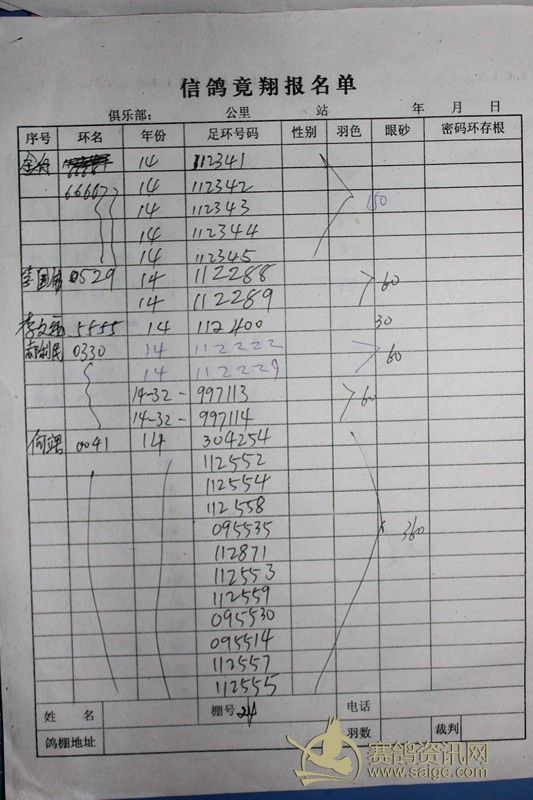 信鸽竟翔报名单
俱乐部： 公里 站 年 月 日
序号 环名 年份 足环号码 性别 羽色 眼砂 密码环存根
14 112341
66607 14 112342
14 112343 150
14 112344
14 112345
李国 0529 14 112288 60
14 112289
李文 5555 14 112400 30
郝利民 0330 14 112222 60
14 112229
14-32- 997113 60
14-32- 997114
0041 14 304254
112552
112554
112558
095535 360
112871
112553
112559
095530
095514
112557
112555
姓 名 棚号 24 电话
鸽棚地址 羽数 裁判
赛鸽资讯网
www.saige.com